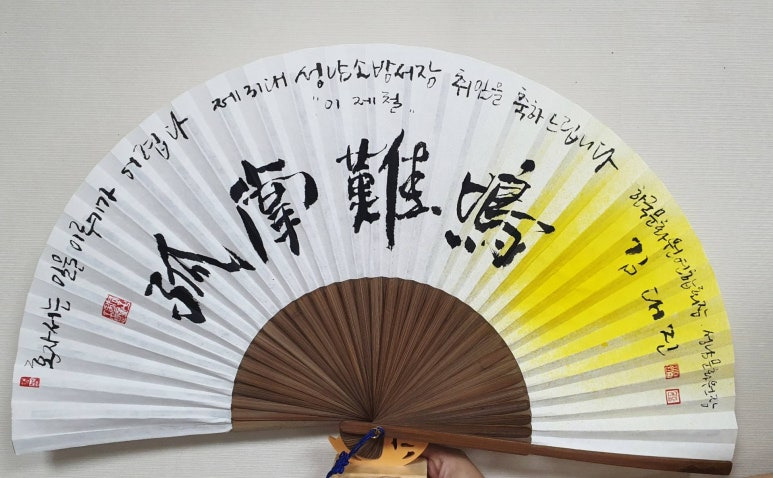 혼자서는 일을 이루기가 어렵다 제31대 성남소방서장 취임을 축하드립니다
"이 제 철"
孤掌難鳴
한국문화원연합회장 성남문화원장
김 대 진